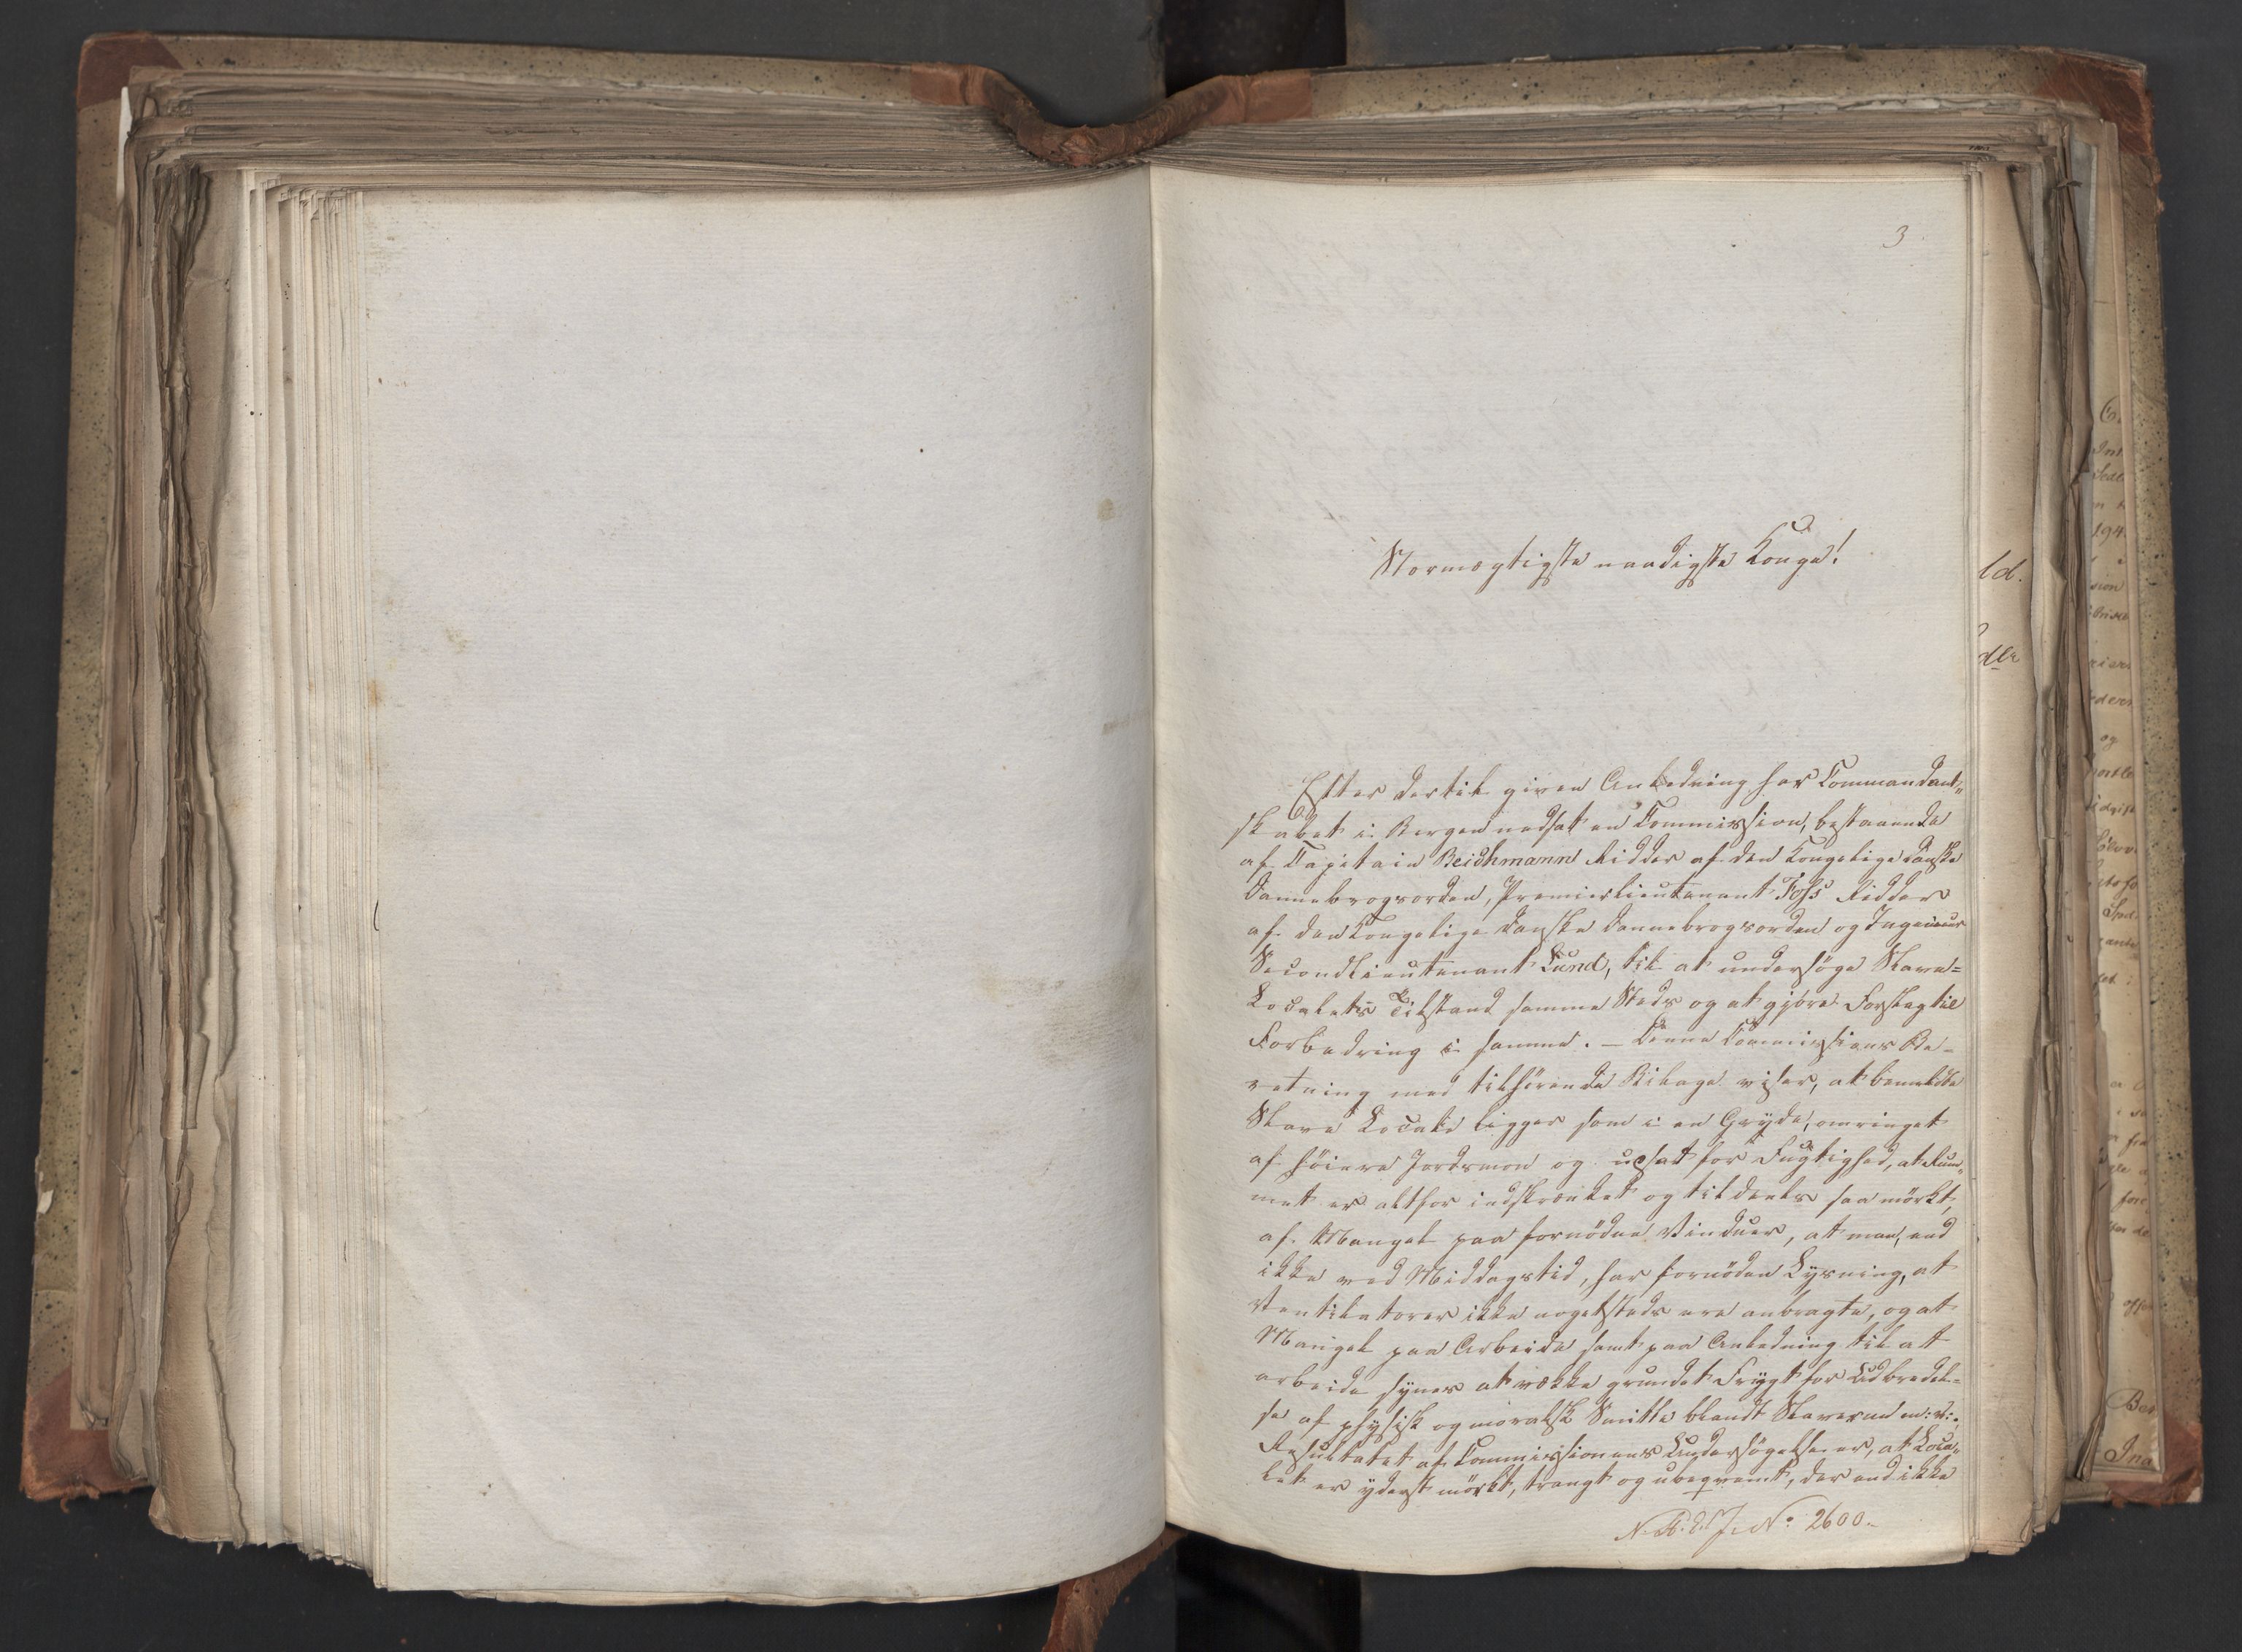 3
Stormægtigste naadigste Konge!
Efter dertil given Anledning har Commandant„
skabet i Bergen nedsat en Commission, bestaaende
af Capitain Beichmann Ridder af den Kongelige danske
Dannebrogsorden, Premierlieutenant Foss Ridder
af den Kongelige danske Dannebrogsorden og Ingenieur
Secondlieutenant Lund, til at undersøge Slave=
Localets Tilstand samme Steds og at gjøre Forslag til
Forbedring i samme. – Denne Commissions Be-
retning med tilhørende Bilage viser, at bemeldte
Slave Locale ligger som i en Gryde, omringet
af høiere Jordsmon og udsat for Fugtighed, at Rum„
met er altfor indskrænket og tildeels saa mørkt,
af Mangel paa fornødne Vinduer, at man, end
ikke ved Middagstid, har fornøden Lysning, at
Ventilatorer ikke nogetsteds ere anbragte, og at
Mangel paa Arbeide samt paa Anledning til at
arbeide synes at vække grundet Frygt for Udbredel=
se af physisk og moralsk Smitte blandt Slaverne m: v:.
Resultatet af Commissionens Undersøgelse er, at Loca„
let er yderst mørkt, trangt og ubeqvemt, der end ikke
No 2600.
ld.